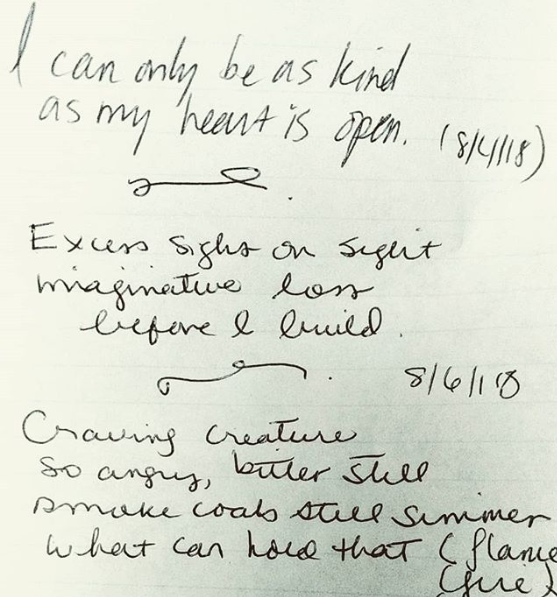 I can only be as kind
as my heart is open. (8/4/18)
Excess sighs on sight
imaginative loss
before I build.
8/6/18
Craving creature
so angry, bitter still
smoke coals still simmer
what can hold that (flame
(fire)